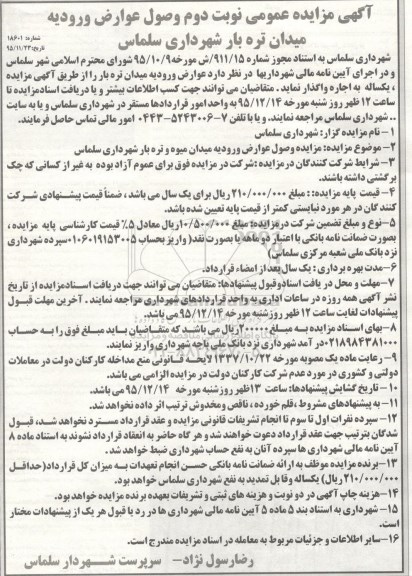 آگهی مزایده عمومی نوبت دوم وصول عوارض ورودیه
میدان تره بار شهرداری سلماس
شماره: ۱۸۶۰۱
تاریخ: ۹۵/۱۱/۲۳
شهرداری سلماس به استناد مجوز شماره ۹۱۱/۱۵/ش مورخه ۹۵/۱۰/۹ شورای محترم اسلامی شهر سلماس
و در اجرای آیین نامه مالی شهرداریها در نظر دارد عوارض ورودیه میدان تره بار را از طریق آگهی مزایده
، یکساله به اجاره واگذار نماید. متقاضیان می توانند جهت کسب اطلاعات بیشتر و یا دریافت اسنادمزایده تا
ساعت ۱۲ ظهر روز شنبه مورخه ۹۵/۱۲/۱۴ به واحد امور قراردادها مستقر در شهرداری سلماس و یا به سایت
.. شهرداری سلماس مراجعه نمایند. و یا با تلفن ۷-۰۴۴۳۵۲۴۳۰۰۶ امور مالی تماس حاصل فرمایند.
۱- نام مزایده گزار: شهرداری سلماس
۲- موضوع مزایده: مزایده وصول عوارض ورودیه میدان میوه و تره بار شهرداری سلماس
۳- شرایط شرکت کنندگان در مزایده: شرکت در مزایده فوق برای عموم آزاد بوده به غیر از کسانی که چک
برگشتی داشته باشند.
۴- قیمت پایه مزایده: مبلغ ۲۱۰/۰۰۰/۰۰۰ ریال برای یک سال می باشد، ضمناً قیمت پیشنهادی شرکت
کنندگان در هر مورد نبایستی کمتر از قیمت پایه تعیین شده باشد.
۵- نوع و مبلغ تضمین شرکت در مزایده: مبلغ ۱۰/۵۰۰/۰۰۰ ریال معادل ۵٪ قیمت کارشناسی پایه مزایده،
بصورت ضمانت نامه بانکی با اعتبار دو ماهه یا بصورت نقد( واریز بحساب ۰۱۰۶۰۱۹۱۵۳۰۰۵ سپرده شهرداری
نزد بانک ملی شعبه مرکزی سلماس)
۶- مدت بهره برداری: یک سال بعد از امضاء قرارداد.
۷- مهلت و محل در یافت اسنادوقبول پیشنهادها: متقاضیان می توانند جهت دریافت اسنادمزایده از تاریخ
نشر آگهی همه روزه در ساعات اداری به واحد قراردادهای شهرداری مراجعه نمایند. آخرین مهلت قبول
پیشنهادات لغایت ساعت ۱۲ ظهر روز شنبه مورخه ۹۵/۱۲/۱۴ می باشد.
۸- بهای اسناد مزایده به مبلغ ۲۰۰۰۰۰ ریال می باشد که متقاضیان باید مبلغ فوق را به حساب
۰۲۱۸۹۸۴۳۸۱۰۰۰ درآمد شهرداری نزد بانک ملی باجه شهرداری واریز نمایند.
۹- رعایت ماده یک مصوبه مورخه ۲۱۳۳۷/۱۰/۲۲ لایحه قانونی منع مداخله کارکنان دولت در معاملات
دولتی و کشوری در مورد عدم شرکت کارکنان دولت در مزایده الزامی می باشد.
۱۰- تاریخ گشایش پیشنهادها: ساعت ۱۳ ظهر روز شنبه مورخه ۹۵/۱۲/۱۴ می باشد.
۱۱- به پیشنهادهای مشروط، قلم خورده، ناقص و مخدوش ترتیب اثر داده نخواهد شد.
۱۲- سپرده نفرات اول تا سوم تا انجام تشریفات قانونی مزایده و عقد قرارداد مسترد نخواهد شد، قبول
شدگان بترتیب جهت عقد قرارداد دعوت خواهند شد و هر گاه حاضر به انعقاد قرارداد نشوند به استناد ماده ۸
آیین نامه مالی شهرداری ها سپرده آنان به نفع حساب شهرداری ضبط خواهد شد.
۱۳- برنده مزایده موظف به ارائه ضمانت نامه بانکی حسن انجام تعهدات به میزان کل قرارداد(حداقل
۲۱۰/۰۰۰/۰۰۰ ریال) یکساله وقابل تمدید به نفع شهرداری سلماس خواهد بود.
۱۴- هزینه چاپ آگهی در دو نوبت و هزینه های ثبتی و تشریفات بعهده برنده مزایده خواهد بود.
۱۵- شهرداری به استناد بند ۵ ماده ۵ آیین نامه مالی شهرداری ها در رد یا قبول هر یک از پیشنهادات مختار
است.
۱۶- سایر اطلاعات و جزئیات مربوط به معامله در اسناد مزایده مندرج است.
رضا رسول نژاد- سرپرست شهردار سلماس